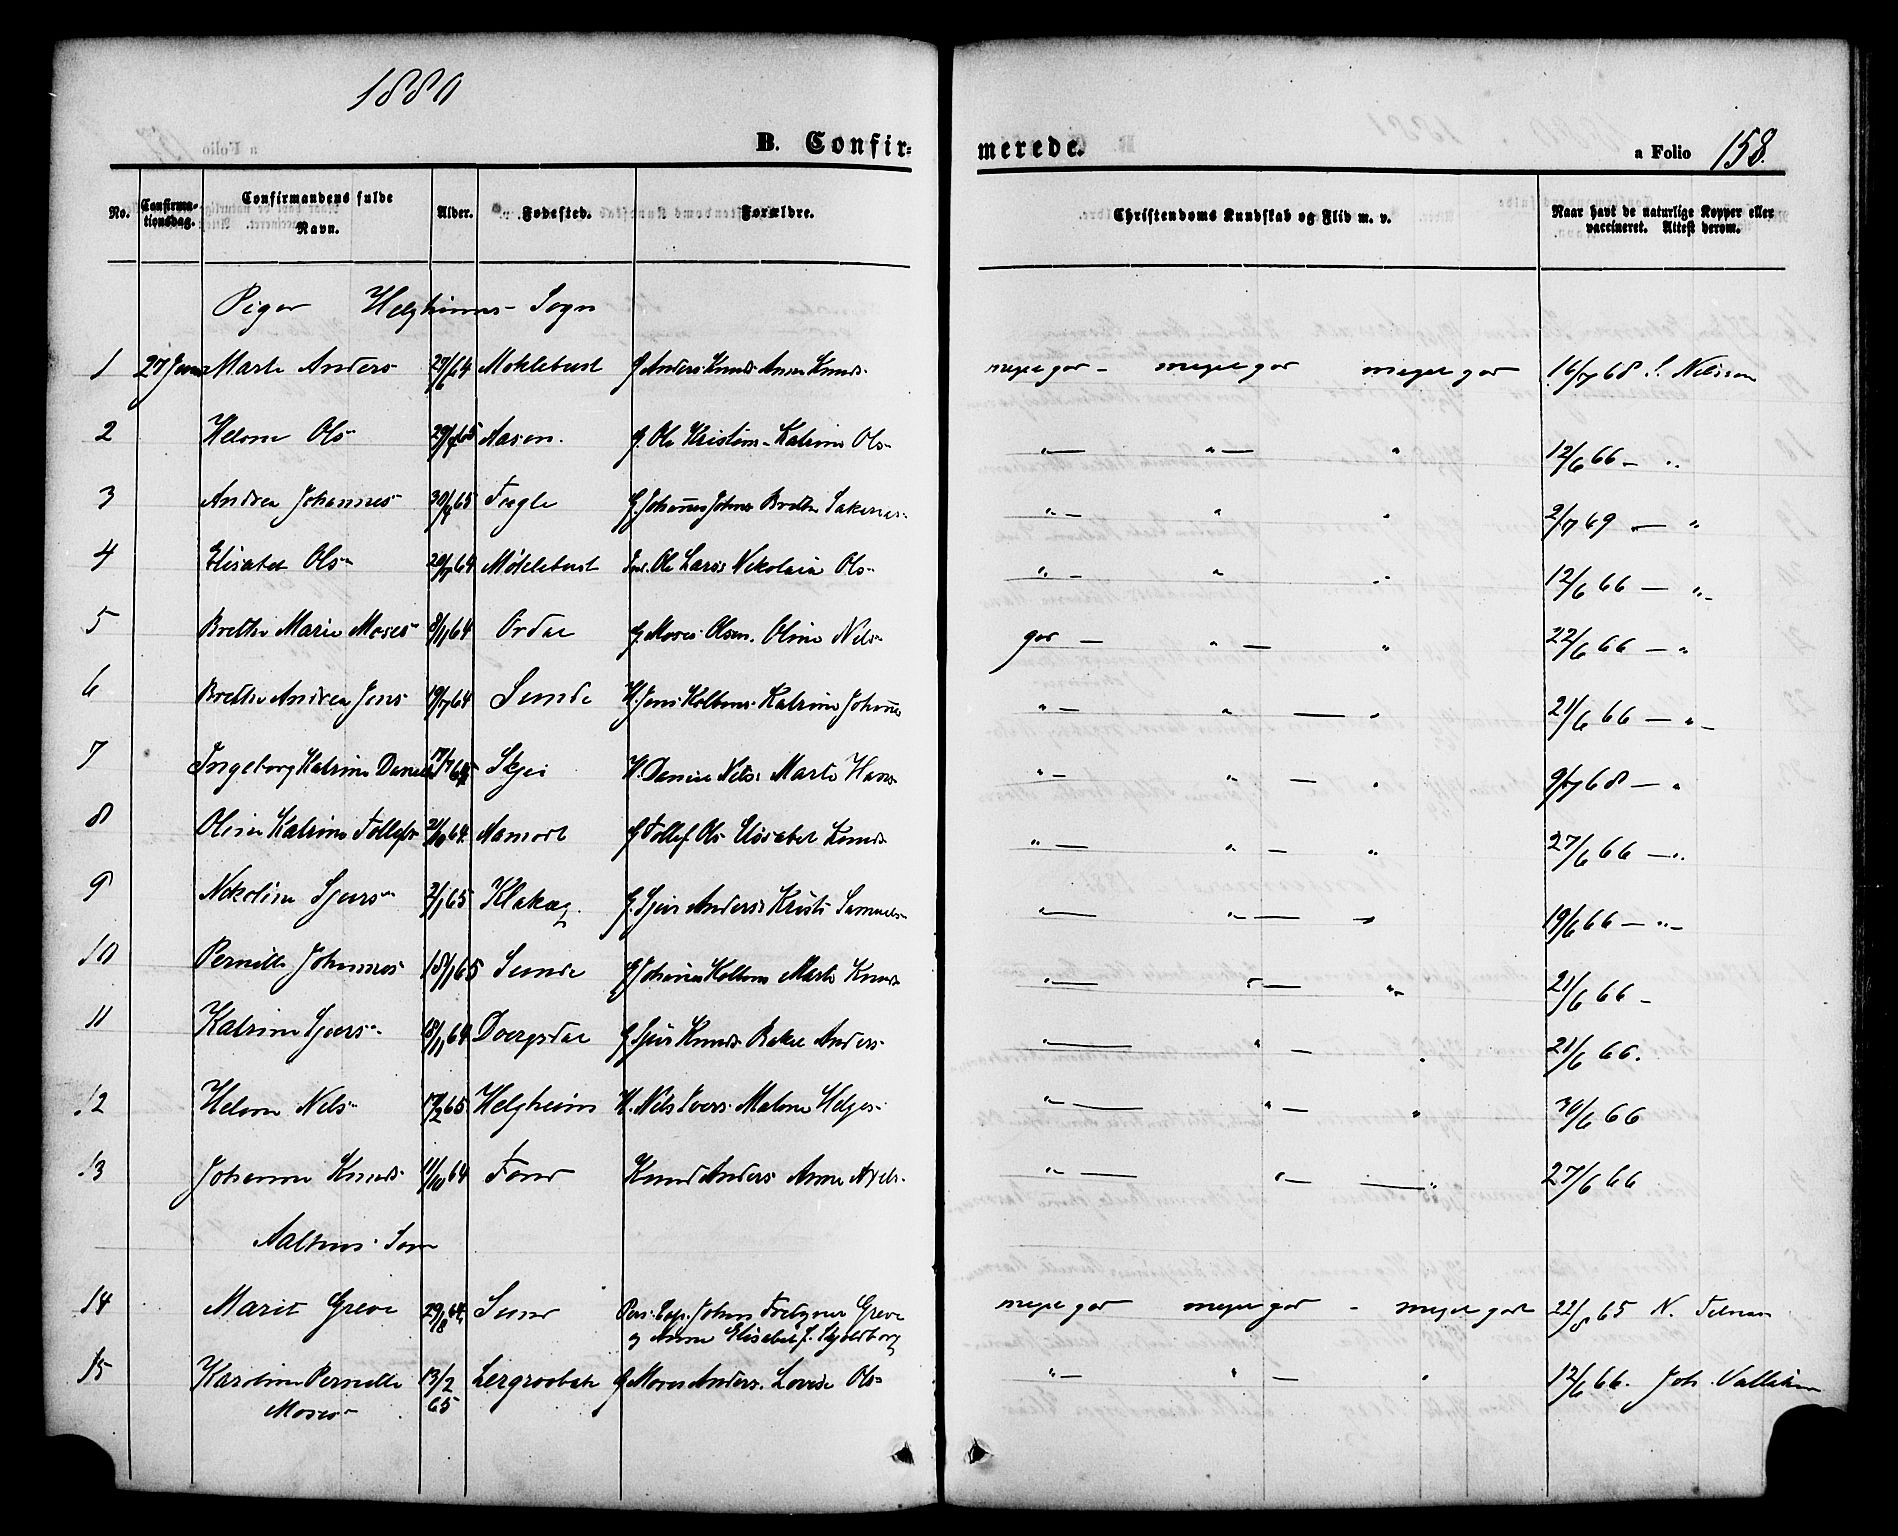 1880
B. Confirmerede.
a Folio 158.
No. Confirmationsdag. Confirmandens fulde Navn. Alder. Fødested. Forældre. Christendoms Kundskab og Flid m. v. Naar havt de naturlige Kopper eller vaccineret. Attest derom.
Piger Helgheims Sogn
1 27 Juni Marte Anders 27/6 64 Moklebust G Anders Knuds Anne Knuds meget god - meget god meget god 16/7 68 S. Nilssen
2 Helene Ols 29/7 65 Aasen. G. Ole Kristens Katrine Ols " — " — " 12/6 66 — "
3 Andrea Johannes 30/4 65 Fugle G. Johannes Johns Brethe Sakarias " — " " 2/7 69 — "
4 Elisabet Ols 20/7 64 Møklebust Ole Lars Nikolaia Ols " — " " 12/6 66 — "
5 Brethe Marie Moses 8/11 64 Ordal G. Moses Olsen. Oline Nels god — " — " 22/6 66 — "
6 Brethe Andrea Jens 19/7 64 Sunde H. Jens Kolbens Katrine Johanne " — " — " 21/6 66 — "
7 Ingeborg Katrine Daniels 17/1 65 Skjei H. Daniel Nils Marte Hans " — " — " 9/7 68 — "
8 Oline Katrine Tollefs 21/10 64 Aamodt G Tollef Ols Elisabet Knuds " — " — " 27/6 66 — "
9 Nekoline Sjurs 2/1 65 Klakæg. G. Sjur Anders Kristi Samuels " — " — " 19/6 66 — "
10 Pernille Johannes 18/1 65 Sunde G Johannes Kolbens Marte Knuds " — " — " 21/6 66 -
11 Katrine Sjurs 18/11 64 Dvergsdal G Sjur Knuds Rakel Anders " — " — " 21/6 66.
12 Helene Nels 17/2 65 Helgheim H. Nils Ivers Malene Helges " — " — " 30/6 66
13 Johanne Knuds 11/10 64 Fond Knud Anders Anne Axels " — " — " 27/6 66
Aalhus Sogn
14 Marit Greve 29/8 64 Sund Pers. Cap. Johan Greve meget god meget god - meget godt 22/8 65 N.
og Anne Elisabet f. Skjoldborg
15 Karoline Pernelle 13/2 65 G Moses Anders. Lovise Ols " — " — " 12/6 66. Joh. Vallestein
Moses